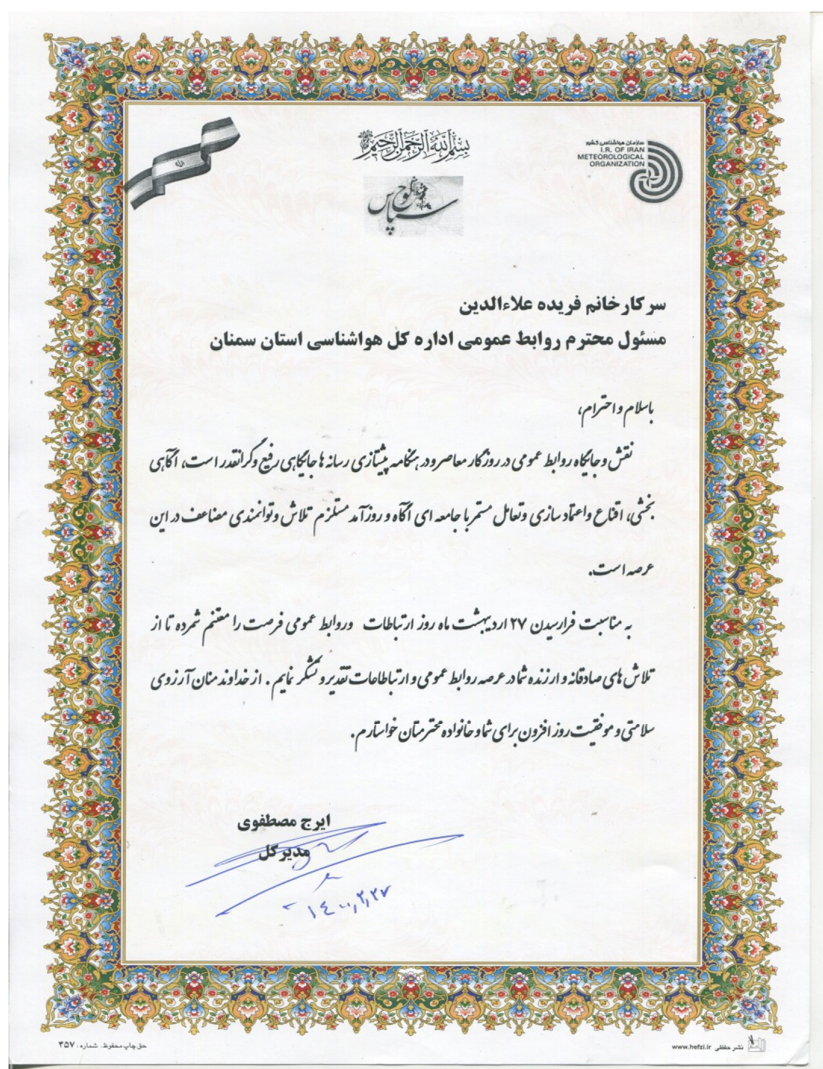 بسم الله الرحمن الرحیم
سازمان هواشناسی کشور
I.R. OF IRAN
METEOROLOGICAL
ORGANIZATION
لوح سپاس
سرکارخانم فریده علاءالدین
مسئول محترم روابط عمومی اداره کل هواشناسی استان سمنان
باسلام و احترام,
نقش و جایگاه روابط عمومی در روزگار معاصر و در هنگامه پیشتازی رسانه ها جایگاهی رفیع وگرانقدر است، آگاهی
بخشی، اقناع واعتماد سازی وتعامل مستمر با جامعه ای آگاه و روزآمد مستلزم تلاش وتوانمندی مضاعف در این
عرصه است.
به مناسبت فرارسیدن ۲۷ اردیبهشت ماه روز ارتباطات وروابط عمومی فرصت را مغتنم شمرده تا از
تلاش های صادقانه و ارزنده شما در عرصه روابط عمومی و ارتباطاعات تقدیر و تشکر نمایم . از خداوند منان آرزوی
سلامتی و موفقیت روز افزون برای شما و خانواده محترمتان خواستارم.
ایرج مصطفوی
مدیر کل
۱۴۰۰,۲,۲۷
حق چاپ محفوظ. شماره: ۴۵۷
www.hefzi.ir نشر حفظی